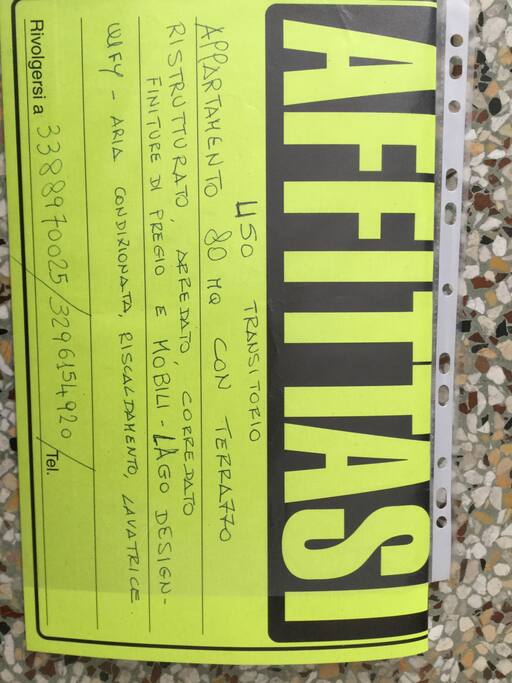 AFFITTASI
USO TRANSITORIO
APPARTAMENTO 80 MQ CON TERRAZZO
RISTRUTTURATO, ARREDATO, CORREDATO
FINITURE DI PREGIO E MOBILI - LAGO DESIGN -
WIFY - ARIA CONDIZIONATA, RISCALDAMENTO, LAVATRICE
Rivolgersi a 3388970025/3296154920/ Tel.